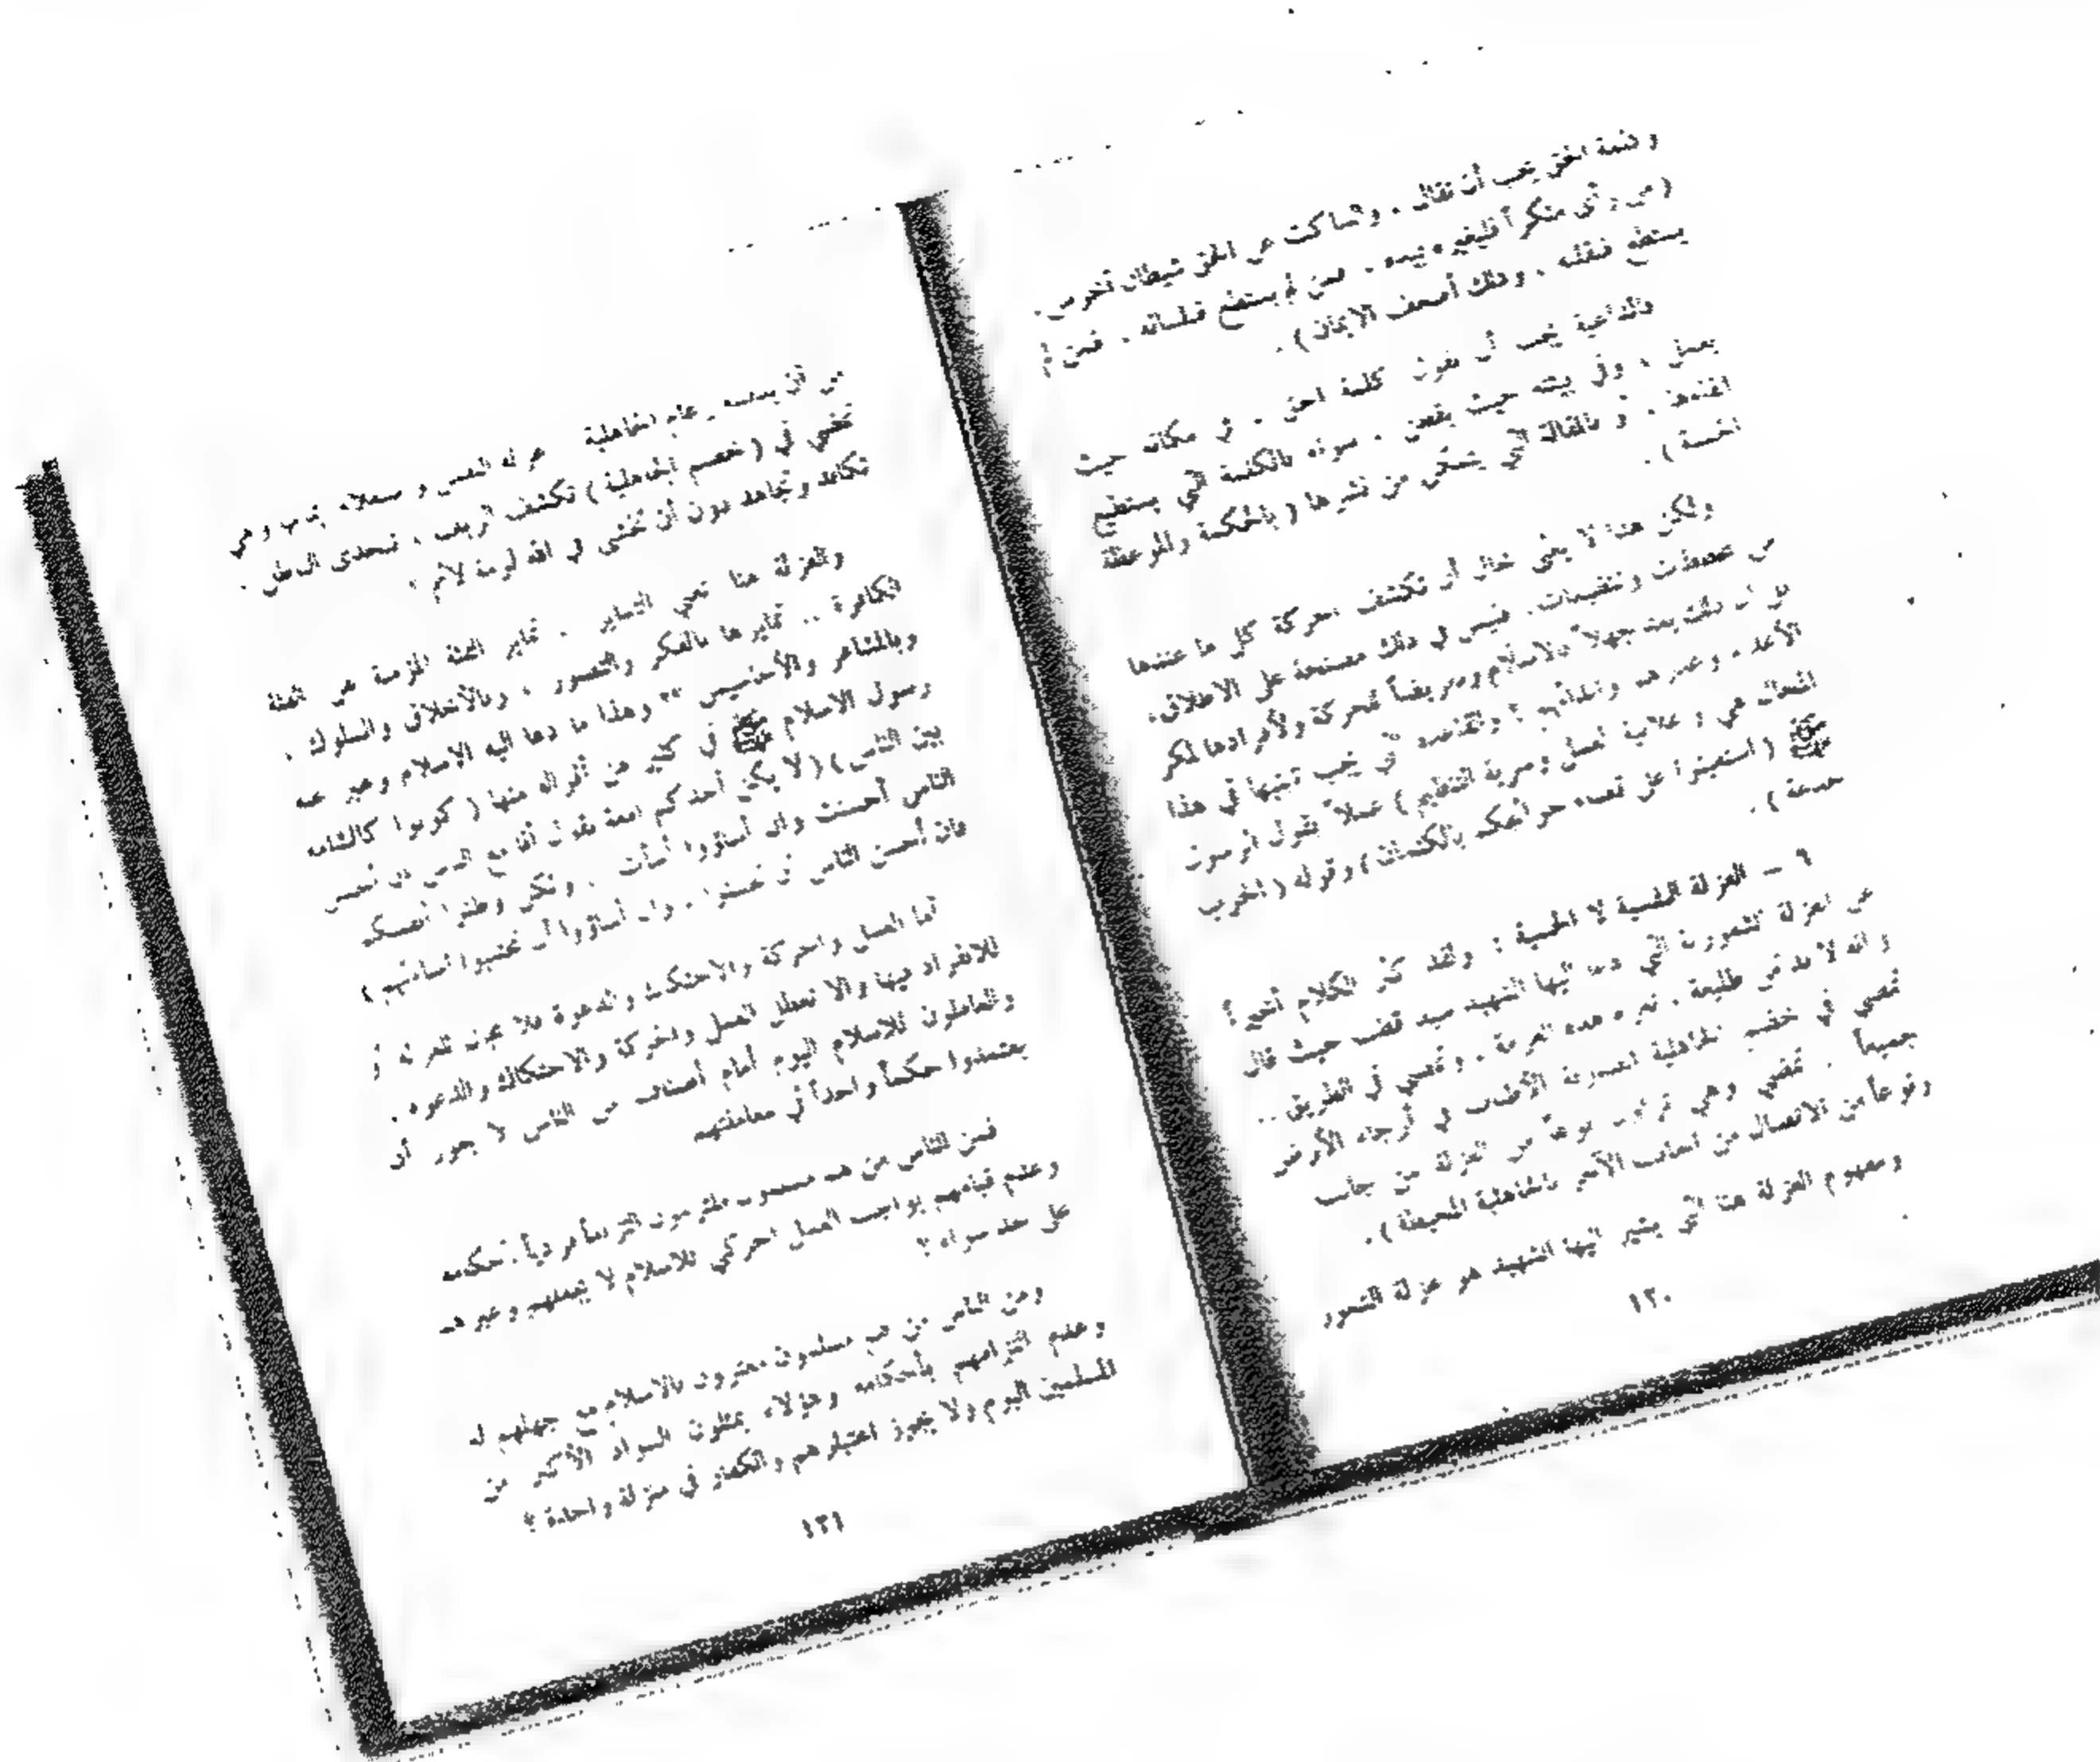 وكلمة الحق يجب أن تقال . والساكت عن الحق شيطان أخرس .
( من رأى منكراً فليغيره بيده . فمن لم يستطع فبلسانه . فمن لم
يستطع فبقلبه . وذلك أضعف الايمان ) .
فالداعية يجب أن يقول كلمة الحق . في مكانه حيث
يعمل ، وفي بيته حيث يقطن . سواء بالكلمة التي يستطيع
. أو بالمقالة التي يتمكن من نشرها ( بالحكمة والموعظة
الحسنة ) .
ولكن هذا لا يعني بحال أن تكشف الحركة كل ما عندها
من مخططات وتنظيمات . فليس في ذلك مصلحة على الاطلاق .
بل ان ذلك يعد جهلاً بالاسلام وتعريضاً للحركة ولأفرادها لمكر
الأعداء وغدرهم ؛ والقاعدة التي يجب تبنيها في هذا
المجال هي ( علانية العمل وسرية التنظيم ) عملاً بقول الرسول
ﷺ ( استعينوا على قضاء حوائجكم بالكتمان ) وقوله ( الحرب
خدعة ) .
٩ – العزلة النفسية لا الحسية : ولقد كثر الكلام أخيراً
عن العزلة الشعورية التي دعا اليها الشهيد سيد قطب حيث قال
( انه لا بد من طليعة . تعزم هذه العزمة . وتمضي في الطريق ..
تمضي في خضم الجاهلية الضاربة الأطناب في أرجاء الأرض
جميعاً . تمضي وهي تزاول نوعاً من العزلة من جانب
ونوعاً من الاتصال من الجانب الآخر بالجاهلية المحيطة ) .
ومفهوم العزلة هنا التي يشير اليها الشهيد هو عزلة الشعور
١٢٠
من أن عالم الجاهلية عزلة النفس و وهي
تمضي في ( خضم الجاهلية ) تكشف الزيف ، تتحدى الباطل .
تكافح وتجاهد دون أن تخشى في الله لومة لائم .
والعزلة هنا تعني التمايز . تمايز الفئة المؤمنة عن الفئة
الكافرة .. تمايزها بالفكر والتصور ، وبالأخلاق والسلوك .
وبالمشاعر والأحاسيس .. وهذا ما دعا اليه الاسلام وعبر عنه
رسول الاسلام ﷺ في كثير من أقواله منها ( كونوا كالشامة
بين الناس ) ( لا يكن أحدكم امعة يقول أنا مع الناس ان أحسن
الناس أحسنت وان أساؤوا أسأت . ولكن وطنوا أنفسكم
فان أحسن الناس أن تحسنوا . وان أساؤوا أن تجتنبوا اساءتهم )
أما العمل والحركة والاحتكاك والدعوة فلا مجال للعزلة أو
للانفراد فيها والا تعطل العمل والحركة والاحتكاك والدعوة .
والعاملون للاسلام اليوم أمام أصناف من الناس لا يجوز أن
يعتمدوا حكماً واحداً في معاملتهم
فمن الناس من هم مسلمون ملتزمون التزاماً فردياً .
وعدم قيامهم بواجب العمل الحركي للاسلام لا يجعلهم وغيرهم
على حد سواء ؟
ومن الناس من هم مسلمون معتزون بالاسلام مع جهلهم له
وعدم التزامهم بأحكامه وهؤلاء يمثلون السواد الأكبر من
المسلمين اليوم ولا يجوز اعتبارهم والكفار في منزلة واحدة ؟
١٢١